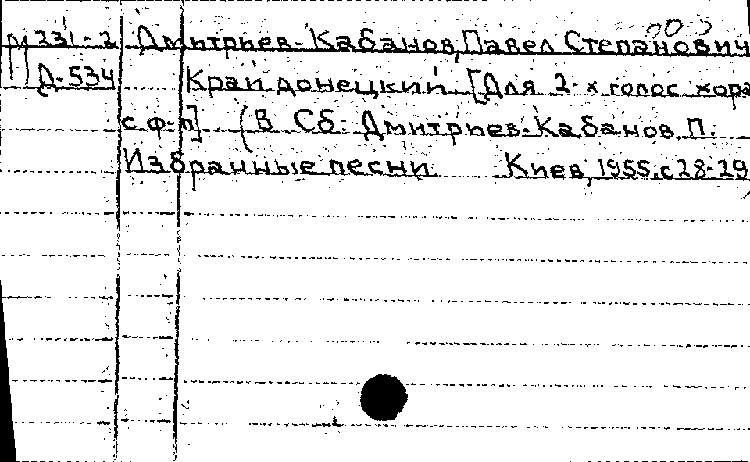 М 231-2 Дмитриев-Кабанов, Павел Степанович
Д-534 Край донецкий [Для 2-х голос хора
с ф-п] (В Сб: Дмитриев-Кабанов, П.
Избранные песни Киев, 1955, с 28-29